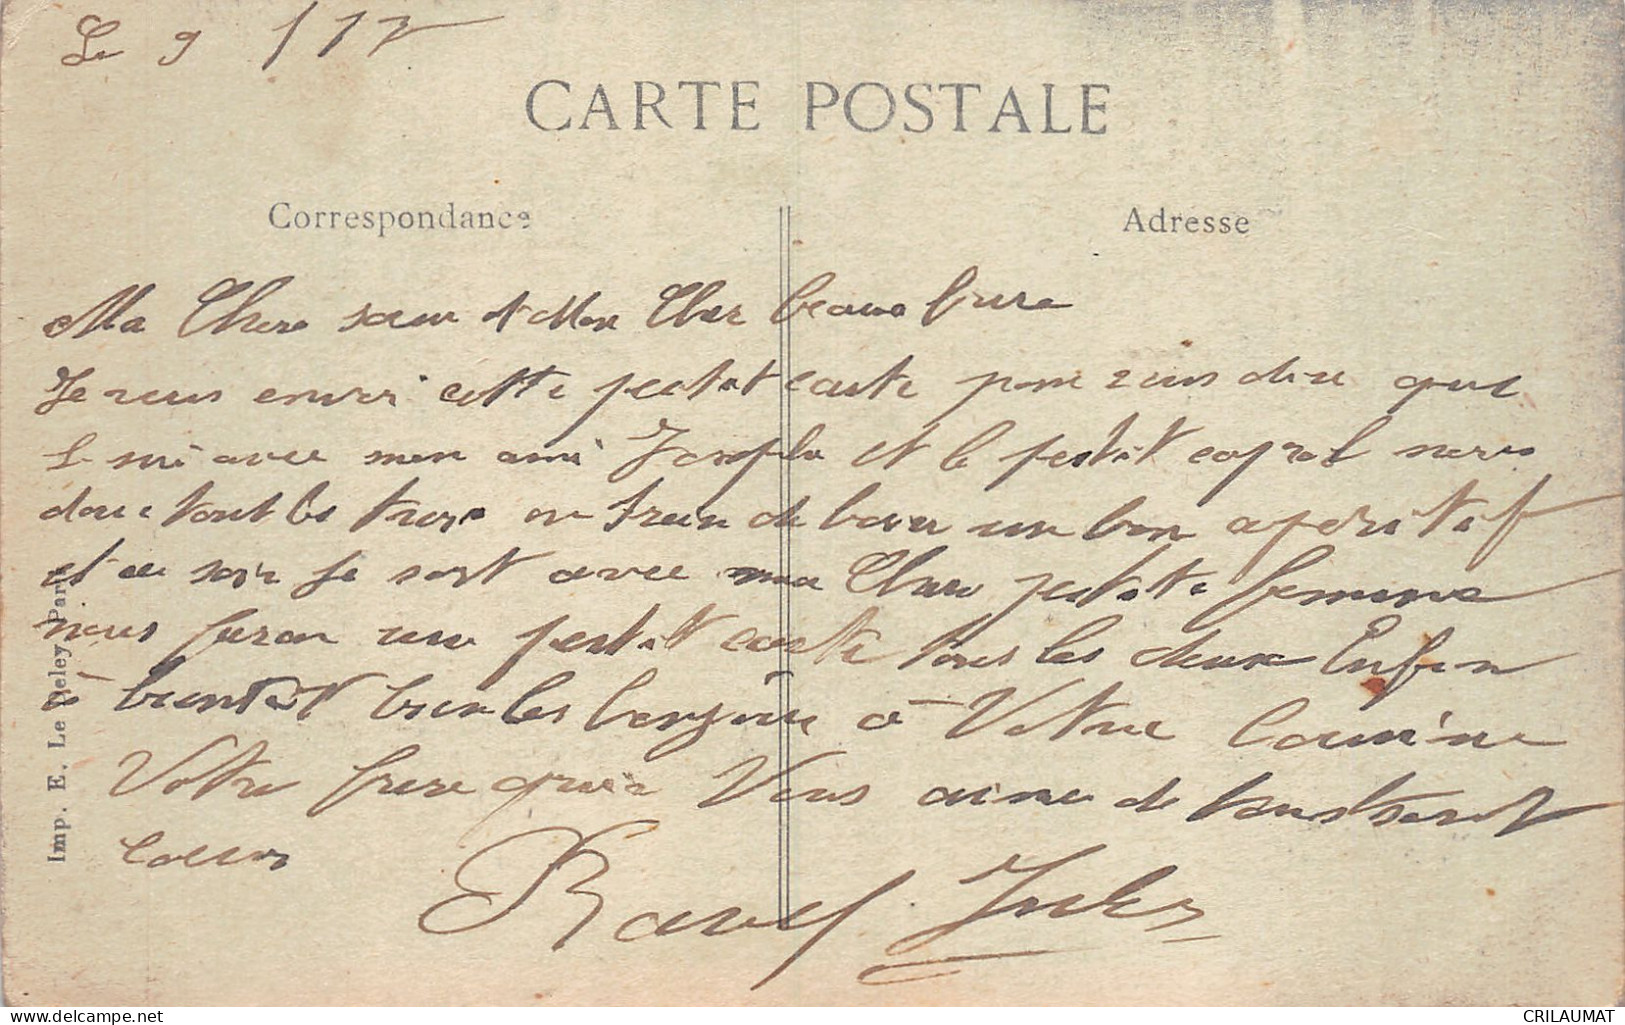 Le 9 / 17
CARTE POSTALE
Correspondance
Adresse
Ma Chere sœur et Mon Cher beaue frere
Je vous envoi cette petit carte pour vous dire que
avec mon ami Joseph et le petit capral nous
donc tout les trois on train de boire un bon aperitif
et ce soir je sort avec ma Chere petite femme
nous feron un petit carte tous les deux Enfin
à bientot bien les bonjour à Votre Cousine
Votre frere qui Vous aime de tous son
coeur
Ravel Jules
Imp. E. Le Deley, Paris
delcampe.net
CRILAUMAT